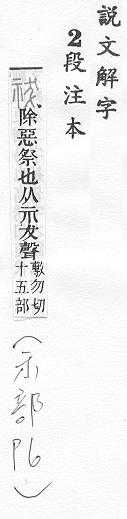 説文解字
2段注本
祓、除惡祭也从示犮聲敷勿切十五部
(示部P6)